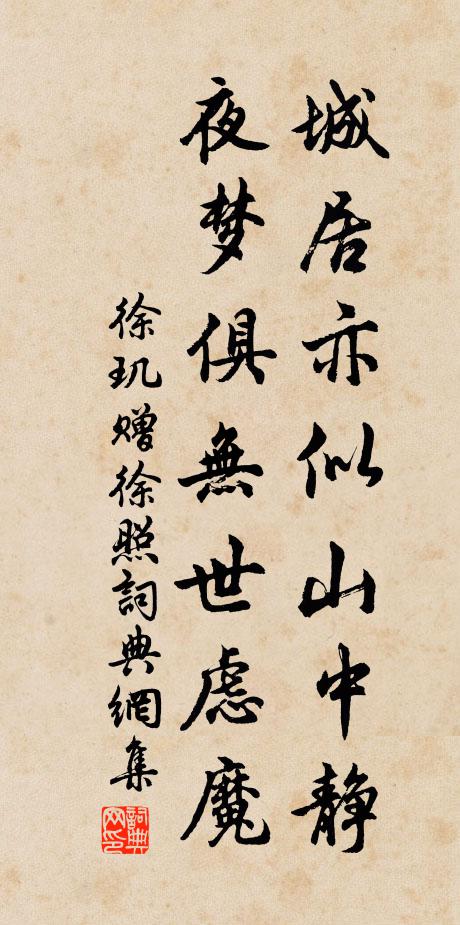 城居亦似山中静
夜梦俱無世慮魔
徐玑赠徐照詞典網集
詞典网印